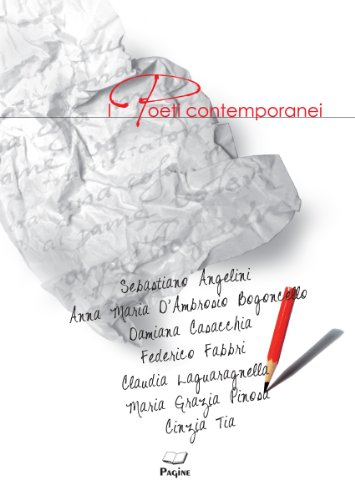 i Poeti contemporanei
Sebastiano Angelini
Anna Maria D'Ambrosio Bogoncello
Damiana Casacchia
Federico Fabbri
Claudia Laguaragnella
Maria Grazia Pinosa
Cinzia Tia
Pagine